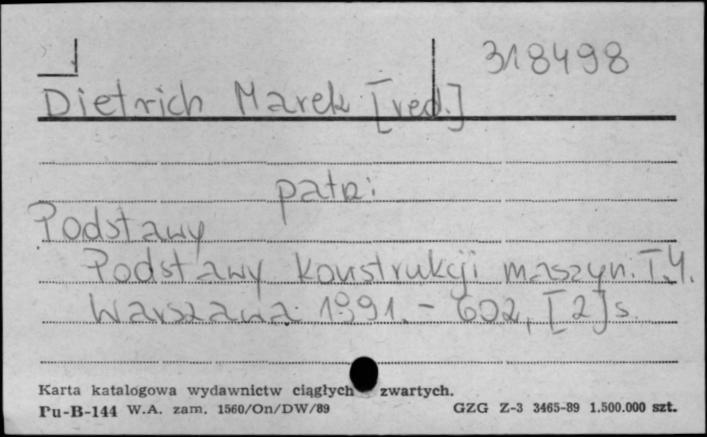 318498
Dietrich Marek [red.]
patrz:
Podstawy
Podstawy konstrukcji maszyn. T.4.
Warszawa 1991. - 602, [2] s.
Karta katalogowa wydawnictw ciągłych zwartych.
Pu-B-144 W.A. zam. 1560/On/DW/89 GZG Z-3 3465-89 1.500.000 szt.